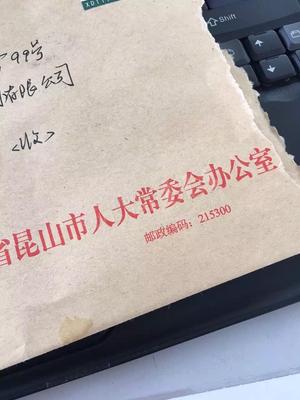 XD11
99号
有限公司
<收>
省昆山市人大常委会办公室
邮政编码：215300
Shift